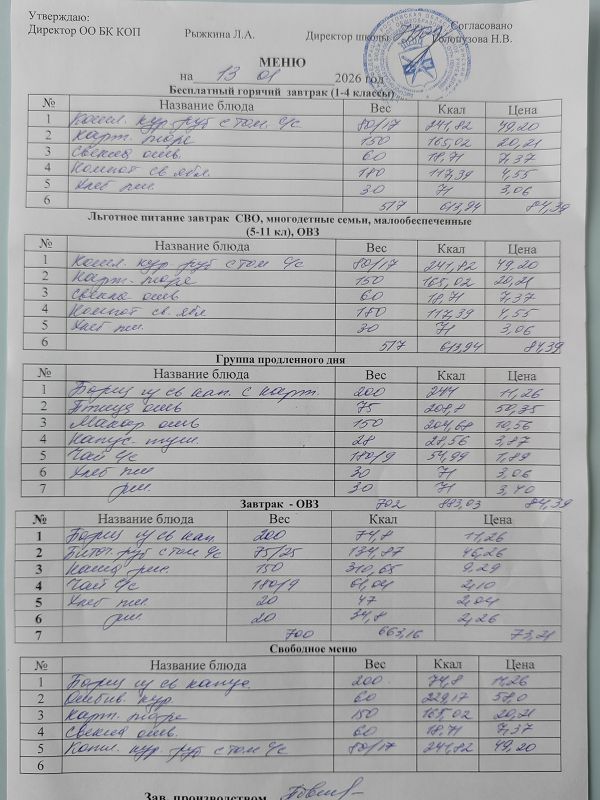 Утверждаю:
Директор ОО БК КОП Рыжкина Л.А. Директор школы Голопузова Н.В.
Согласовано
МЕНЮ
на 13 01 2026 год
Бесплатный горячий завтрак (1-4 классы)
№ Название блюда Вес Ккал Цена
1 Котл. кур. руб с том. с/с 80/17 241,82 49,20
2 Карт. пюре 150 165,02 20,21
3 Свекла отв. 60 18,71 7,37
4 Компот св. ябл. 180 117,39 4,55
5 Хлеб пш. 30 71 3,06
6 517 613,94 84,39
Льготное питание завтрак СВО, многодетные семьи, малообеспеченные
(5-11 кл), ОВЗ
№ Название блюда Вес Ккал Цена
1 Котл. кур руб с том с/с 80/17 241,82 49,20
2 Карт. пюре 150 165,02 20,21
3 Свекла отв 60 18,71 7,37
4 Компот св. ябл 180 117,39 4,55
5 Хлеб пш. 30 71 3,06
6 517 613,94 84,39
Группа продленного дня
№ Название блюда Вес Ккал Цена
1 Борщ из св кап. с карт. 200 244 11,26
2 Птица отв 75 208,8 50,35
3 Макар отв 150 204,68 10,56
4 Капус. туш. 28 28,56 3,87
5 Чай с/с 180/9 54,99 1,89
6 Хлеб пш 30 71 3,06
7 рж. 30 71 3,40
Завтрак - ОВЗ 702 883,03 84,39
№ Название блюда Вес Ккал Цена
1 Борщ из св кап. 200 74,8 11,26
2 Биточ. руб с том с/с 75/25 134,87 46,26
3 Каша рис. 150 310,65 9,29
4 Чай с/с 180/9 61,04 2,10
5 Хлеб пш. 20 47 2,04
6 рж. 20 34,8 2,26
7 700 663,16 73,21
Свободное меню
№ Название блюда Вес Ккал Цена
1 Борщ из св капус. 200 74,8 11,26
2 Отбив. кур 60 229,17 58,0
3 Карт. пюре 150 165,02 20,21
4 Свекла отв. 60 18,71 7,37
5 Котл. кур руб с том с/с 80/17 241,82 49,20
6
Зав. производством